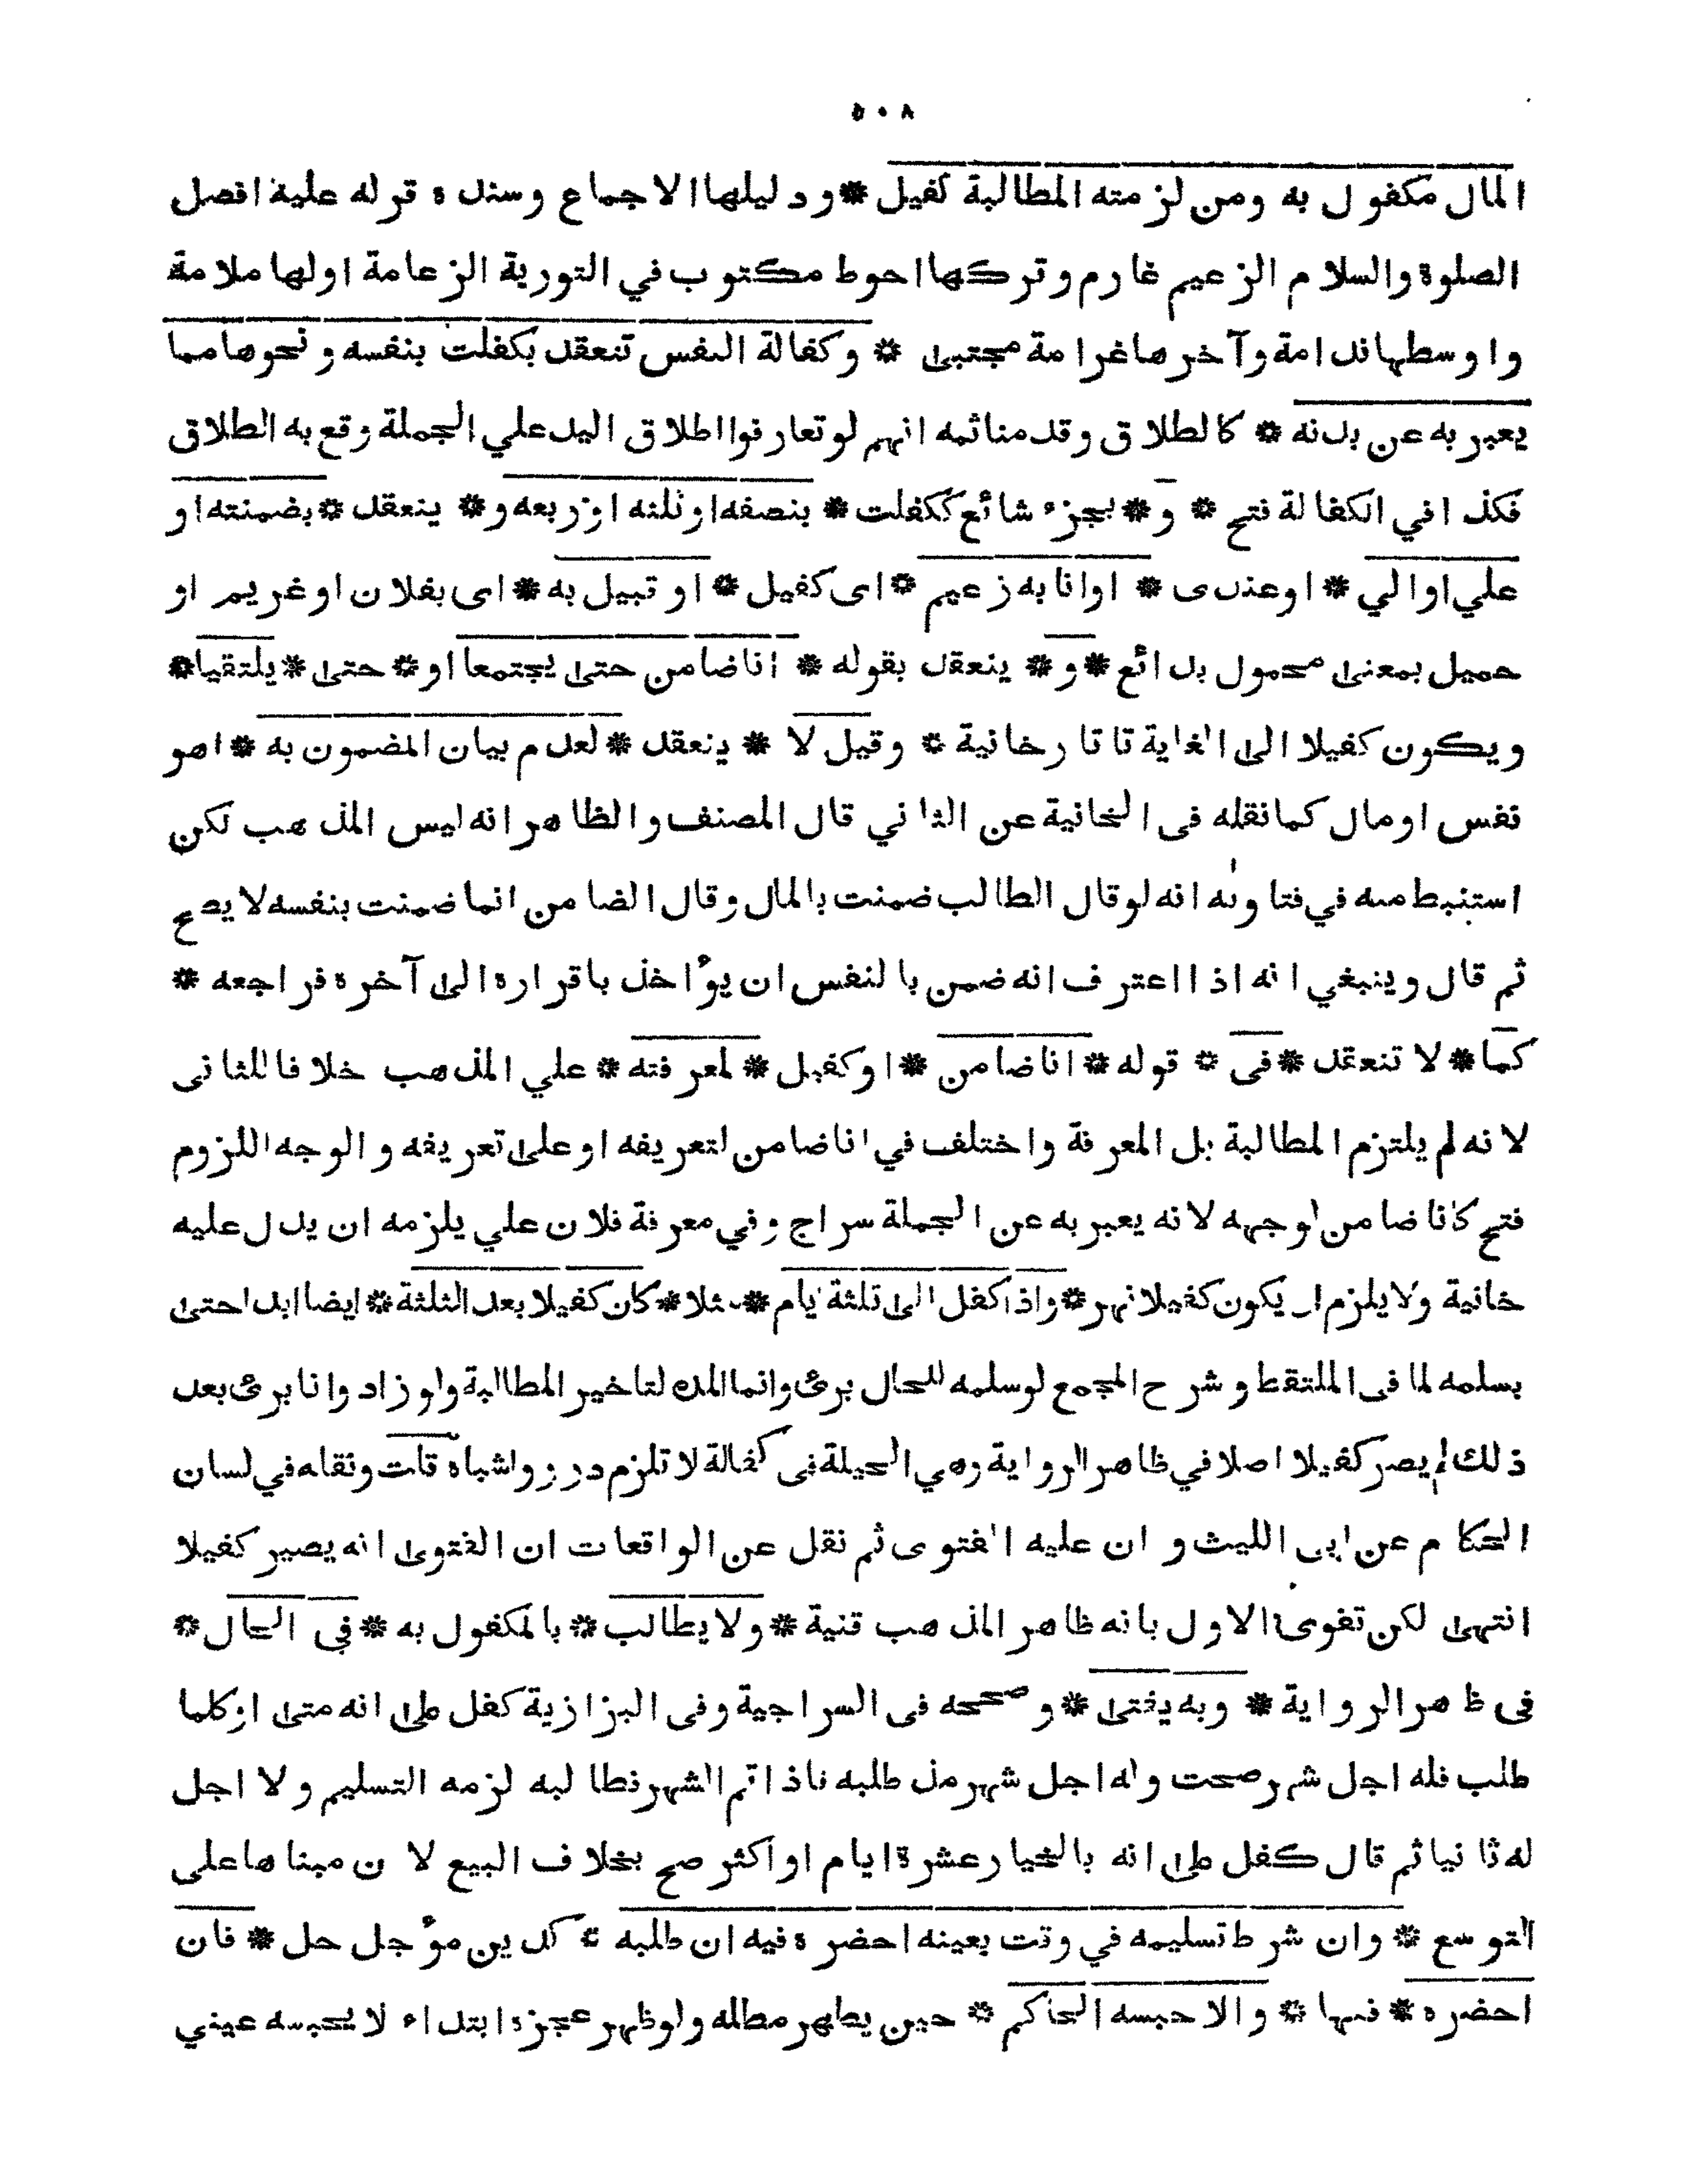 ٥٠٨
المال مكفول به ومن لزمته المطالبة كفيل * ودليلها الاجماع وسنده قوله عليه افضل
الصلوة والسلام الزعيم غارم وتركها احوط مكتوب في التورية الزعامة اولها ملامة
واوسطها ندامة وآخرها غرامة مجتبى * وكفالة النفس تنعقد بكفلت بنفسه ونحوها مما
يعبر به عن بدنه * كالطلاق وقدمنا ثمه انهم لو تعارفوا اطلاق اليد علي الجملة وقع به الطلاق
فكذا في الكفالة فتح * و * بجزء شائع ككفلت * بنصفه او ثلثه او ربعه و * ينعقد * بضمنته او
علي او الي * او عندى * او انا به زعيم * اى كفيل * او قبيل به * اى بفلان او غريم او
حميل بمعنى محمول بدائع * و * ينعقد بقوله * انا ضامن حتى يجتمعا او * حتى * يلتقيا *
ويكون كفيلا الى الغاية تاتارخانية * وقيل لا * ينعقد * لعدم بيان المضمون به * اهو
نفس او مال كما نقله فى الخانية عن الثاني قال المصنف والظاهر انه ليس المذهب لكن
استنبط منه في فتاويه انه لو قال الطالب ضمنت بالمال وقال الضامن انما ضمنت بنفسه لا يصح
ثم قال وينبغي انه اذا اعترف انه ضمن بالنفس ان يؤاخذ باقراره الى آخره فراجعه *
كما * لا تنعقد * فى * قوله * انا ضامن * او كفيل * لمعرفته * علي المذهب خلافا للثانى
لانه لم يلتزم المطالبة بل المعرفة واختلف في انا ضامن لتعريفه او على تعريفه والوجه اللزوم
فتح كانا ضامن لوجهه لانه يعبر به عن الجملة سراج وفي معرفة فلان علي يلزمه ان يدل عليه
خانية ولا يلزم ان يكون كفيلا نهر * واذا كفل الى ثلثة ايام * مثلا * كان كفيلا بعد الثلثة * ايضا ابدا حتى
يسلمه لما فى الملتقط وشرح المجمع لو سلمه للحال برئ وانما المده لتاخير المطالبة ولو زاد وانا برئ بعد
ذلك لم يصر كفيلا اصلا في ظاهر الرواية وهي الحيلة فى كفالة لا تلزم درر واشباه قلت ونقله في لسان
الحكام عن ابى الليث وان عليه الفتوى ثم نقل عن الواقعات ان الفتوى انه يصير كفيلا
انتهى لكن تقوى الاول بانه ظاهر المذهب قنية * ولا يطالب * بالمكفول به * فى الحال *
فى ظاهر الرواية * وبه يفتى * وصححه فى السراجية وفى البزازية كفل على انه متى او كلما
طلب فله اجل شهر صحت وله اجل شهر مذ طلبه فاذا تم الشهر فطالبه لزمه التسليم ولا اجل
له ثانيا ثم قال كفل على انه بالخيار عشرة ايام او اكثر صح بخلاف البيع لان مبناها على
التوسع * وان شرط تسليمه في وقت بعينه احضره فيه ان طلبه * كدين مؤجل حل * فان
احضره * فبها * والا حبسه الحاكم * حين يظهر مطله ولو ظهر عجزه ابتداء لا يحبسه عيني